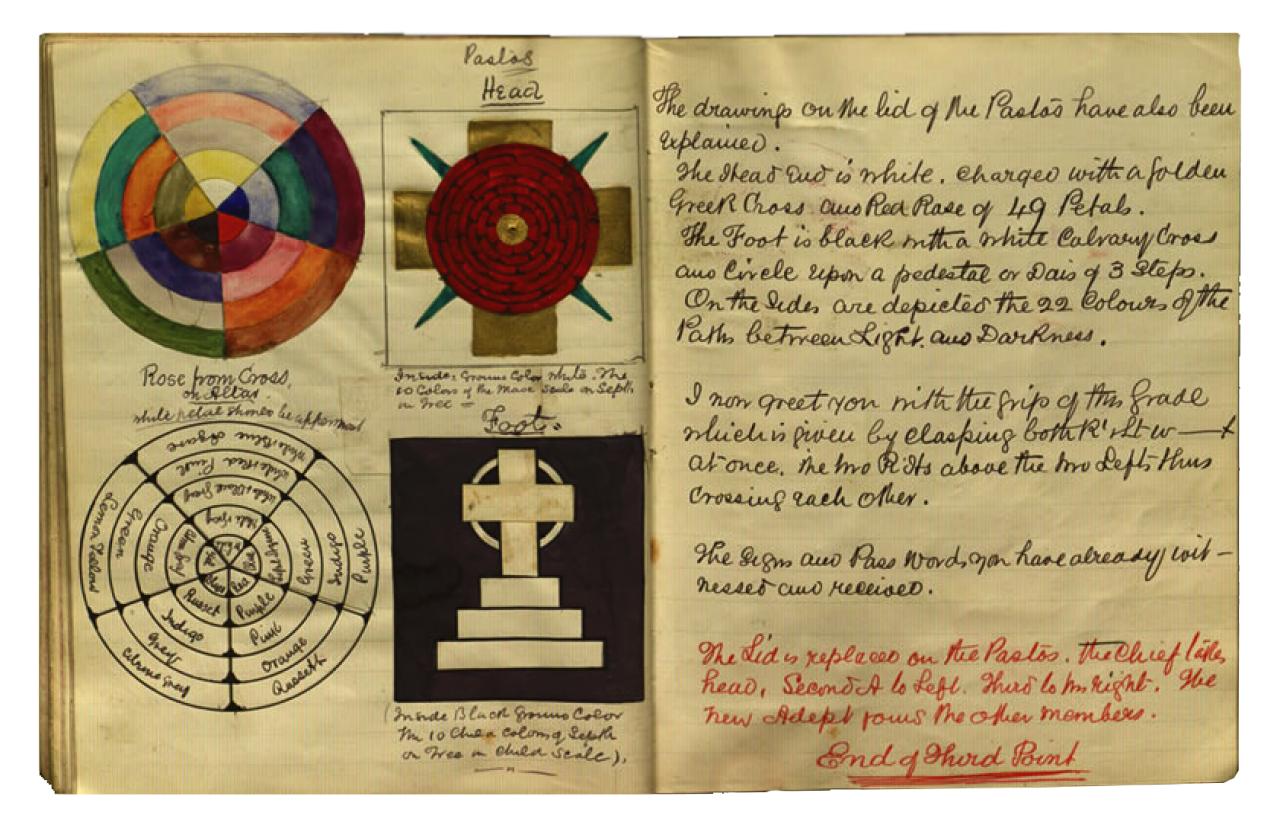 Pastos
Head
Rose from Cross,
on Altar.
white petal should be uppermost
Inside: Ground Color White. The
10 Colors of the Seph
on Tree =
Foot.
White Blue Purple
White Red Pink
White Black Gray
Lemon Yellow
Green
Orange
Green
Indigo
Purple
Russet
Indigo
Grey
Citrine Gray
Purple
Pink
Orange
Russet
Red
(Inside Black Ground Color
The 10 colors of Seph
on Tree in Child Scale).
The drawings on the lid of the Pastos have also been
explained.
The Head End is white. charged with a Golden
Greek Cross and Red Rose of 49 Petals.
The Foot is black with a white Calvary Cross
and Circle upon a pedestal or Dais of 3 Steps.
On the Sides are depicted the 22 Colours of the
Paths between Light and Darkness.
I now greet you with the grip of this Grade
which is given by clasping both
at once. the two R'Hts above the two Lefts thus
crossing each other.
The Signs and Pass Words you have already wit-
nessed and received.
The Lid is replaced on the Pastos. the Chief
head, Second A to Left. Third to his right. The
new Adept joins the other members.
End of Third Point